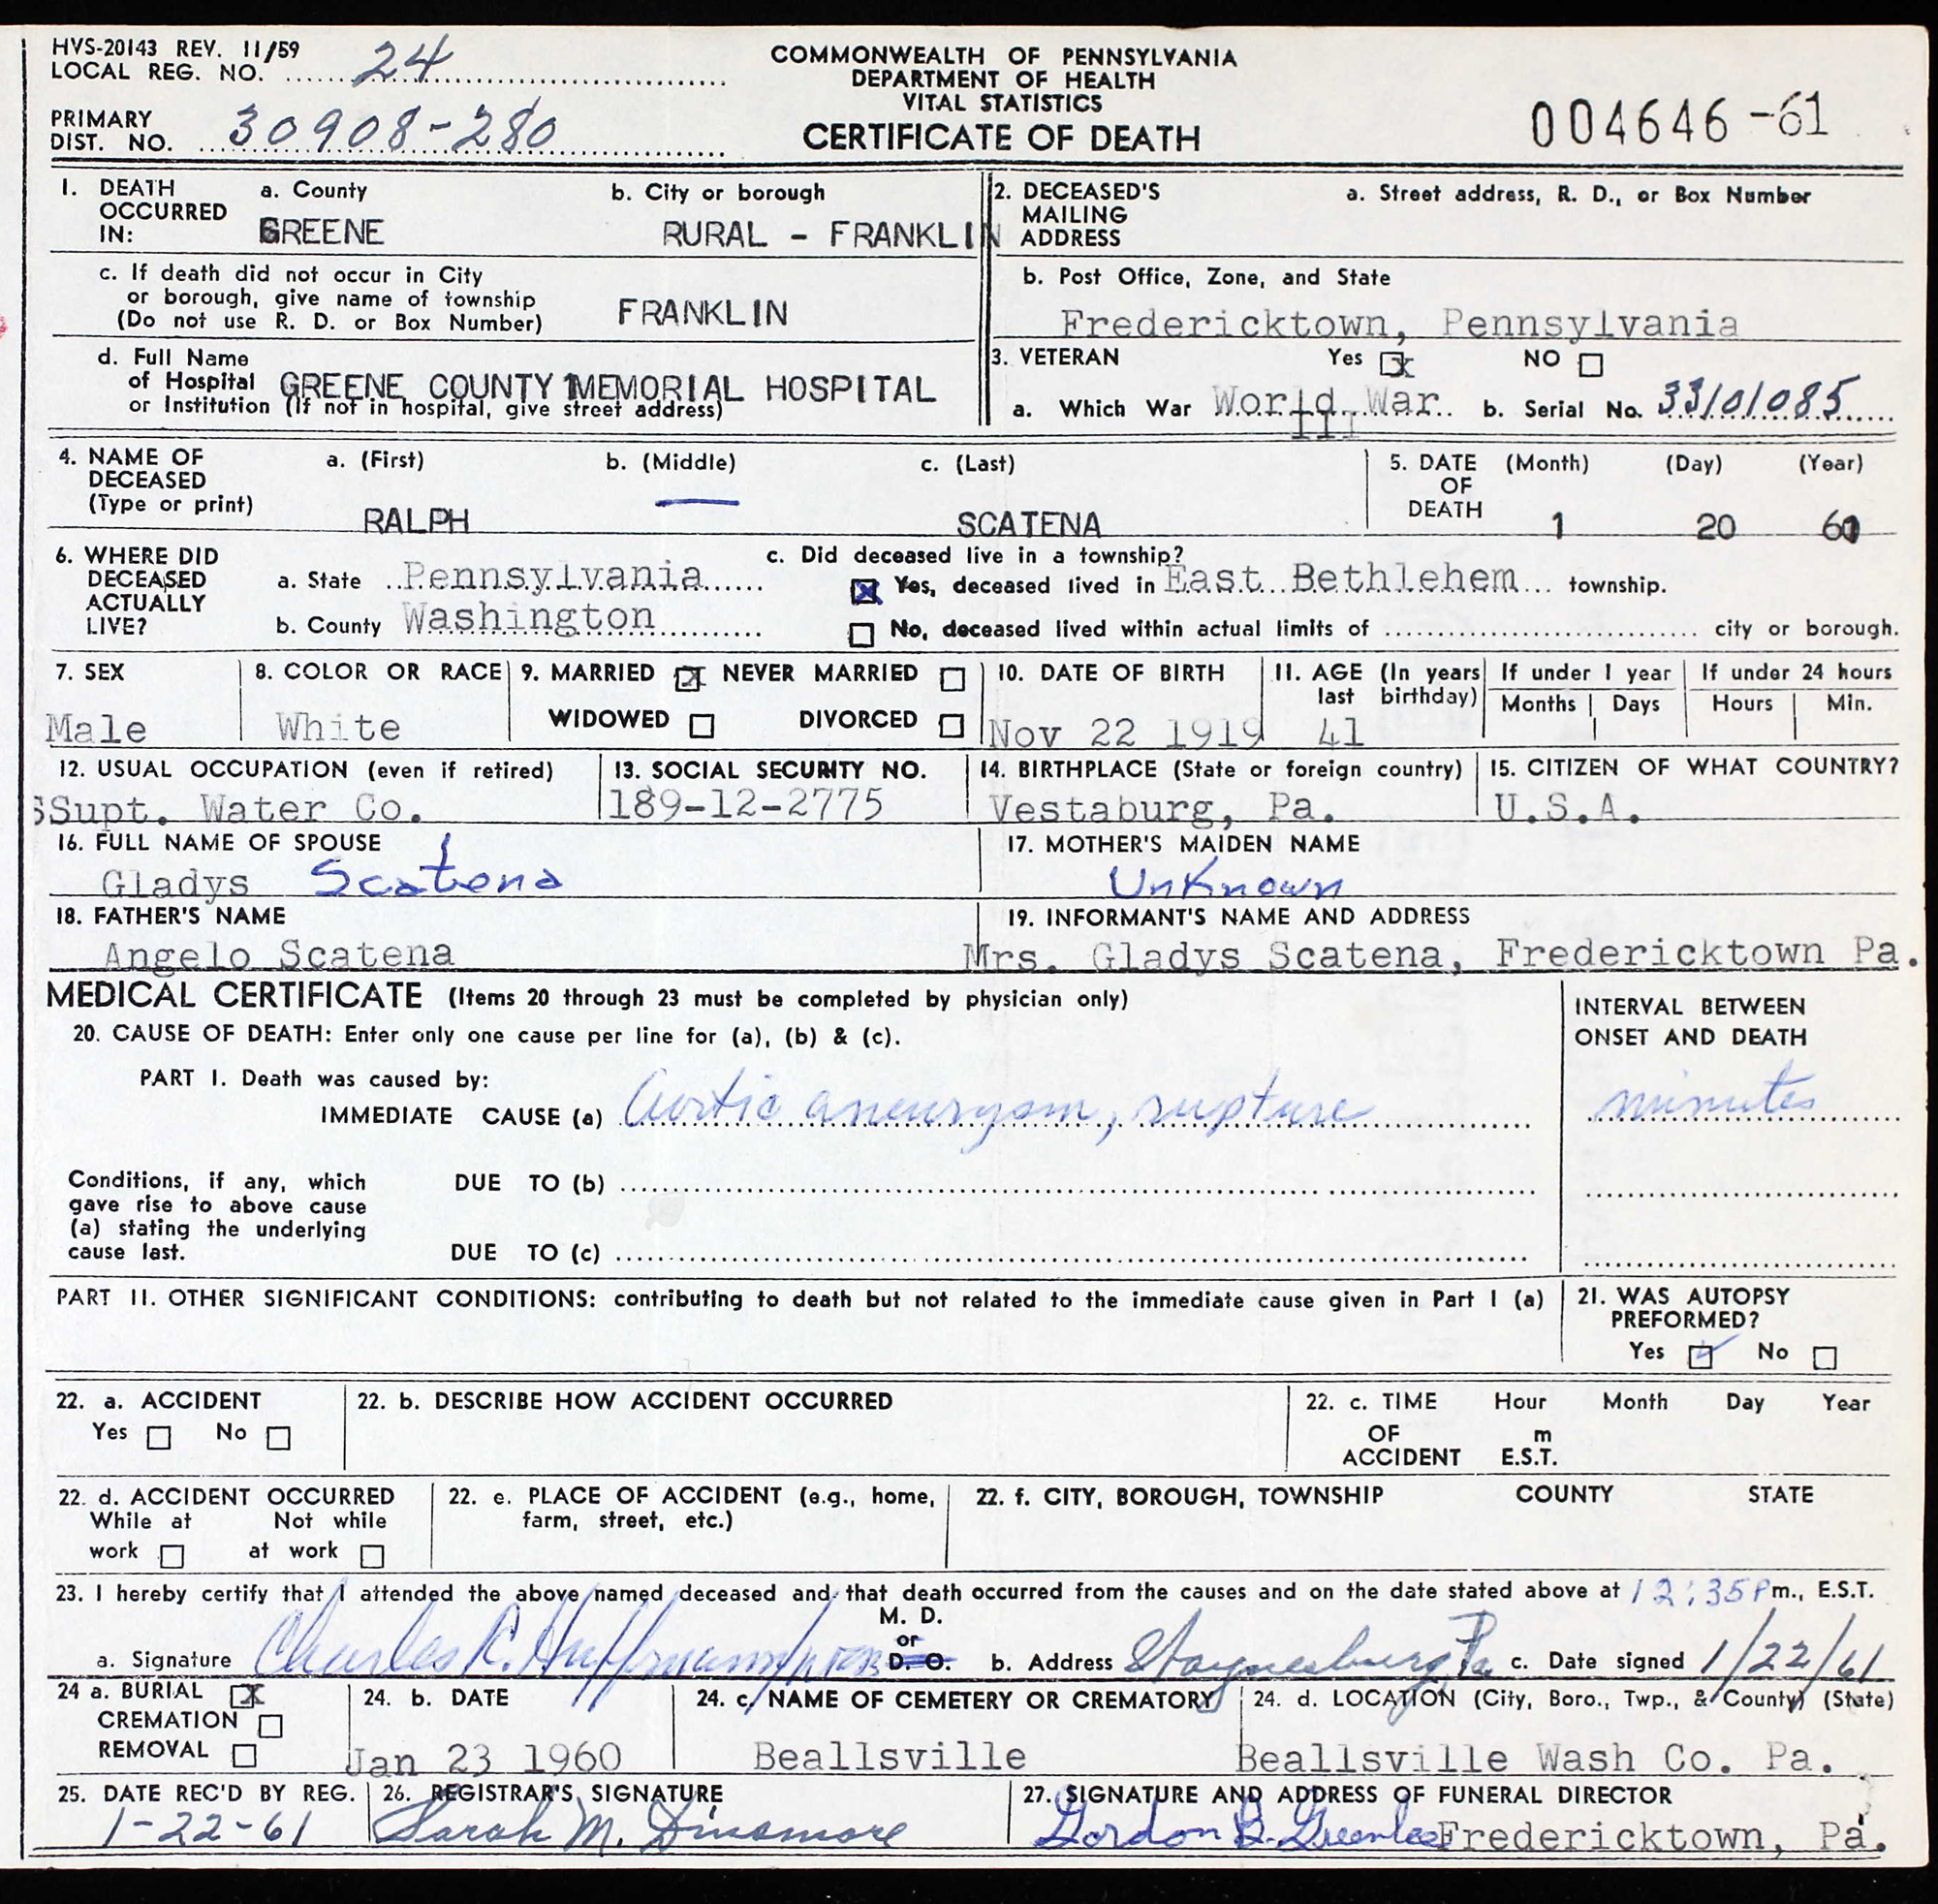 HVS-20143 REV. 11/59
LOCAL REG. NO. 24
COMMONWEALTH OF PENNSYLVANIA
DEPARTMENT OF HEALTH
VITAL STATISTICS
CERTIFICATE OF DEATH
PRIMARY
DIST. NO. 30908-280
004646-61
1. DEATH OCCURRED IN:
a. County
GREENE
b. City or borough
RURAL - FRANKLIN
2. DECEASED'S MAILING ADDRESS
a. Street address, R. D., or Box Number
c. If death did not occur in City
or borough, give name of township
(Do not use R. D. or Box Number)
FRANKLIN
b. Post Office, Zone, and State
Fredericktown, Pennsylvania
d. Full Name
of Hospital
or Institution (If not in hospital, give street address)
GREENE COUNTY MEMORIAL HOSPITAL
3. VETERAN Yes x NO
a. Which War World War
b. Serial No. 33101085
4. NAME OF
DECEASED
(Type or print)
a. (First)
RALPH
b. (Middle)
—
c. (Last)
SCATENA
5. DATE OF DEATH
(Month) (Day) (Year)
1 20 61
6. WHERE DID
DECEASED
ACTUALLY
LIVE?
a. State Pennsylvania
b. County Washington
c. Did deceased live in a township?
X Yes, deceased lived in East Bethlehem township.
No, deceased lived within actual limits of city or borough.
7. SEX
Male
8. COLOR OR RACE
White
9. MARRIED X NEVER MARRIED
WIDOWED DIVORCED
10. DATE OF BIRTH
Nov 22 1919
11. AGE (In years
last birthday)
41
If under 1 year
Months Days
If under 24 hours
Hours Min.
12. USUAL OCCUPATION (even if retired)
SSupt. Water Co.
13. SOCIAL SECURITY NO.
189-12-2775
14. BIRTHPLACE (State or foreign country)
Vestaburg, Pa.
15. CITIZEN OF WHAT COUNTRY?
U.S.A.
16. FULL NAME OF SPOUSE
Gladys Scatena
17. MOTHER'S MAIDEN NAME
Unknown
18. FATHER'S NAME
Angelo Scatena
19. INFORMANT'S NAME AND ADDRESS
Mrs. Gladys Scatena, Fredericktown Pa.
MEDICAL CERTIFICATE (Items 20 through 23 must be completed by physician only)
INTERVAL BETWEEN
ONSET AND DEATH
20. CAUSE OF DEATH: Enter only one cause per line for (a), (b) & (c).
PART I. Death was caused by:
IMMEDIATE CAUSE (a) Aortic aneurysm, rupture
minutes
Conditions, if any, which
gave rise to above cause
(a) stating the underlying
cause last.
DUE TO (b)
DUE TO (c)
PART II. OTHER SIGNIFICANT CONDITIONS: contributing to death but not related to the immediate cause given in Part I (a)
21. WAS AUTOPSY
PREFORMED?
Yes ✓ No
22. a. ACCIDENT
Yes No
22. b. DESCRIBE HOW ACCIDENT OCCURRED
22. c. TIME Hour Month Day Year
OF m
ACCIDENT E.S.T.
22. d. ACCIDENT OCCURRED
While at Not while
work at work
22. e. PLACE OF ACCIDENT (e.g., home,
farm, street, etc.)
22. f. CITY, BOROUGH, TOWNSHIP COUNTY STATE
23. I hereby certify that I attended the above named deceased and that death occurred from the causes and on the date stated above at 12:35 P m., E.S.T.
M. D.
or
D. O.
a. Signature Charles R. Huffman
b. Address Waynesburg Pa
c. Date signed 1/22/61
24 a. BURIAL X
CREMATION
REMOVAL
24. b. DATE
Jan 23 1960
24. c. NAME OF CEMETERY OR CREMATORY
Beallsville
24. d. LOCATION (City, Boro., Twp., & County) (State)
Beallsville Wash Co. Pa.
25. DATE REC'D BY REG.
1-22-61
26. REGISTRAR'S SIGNATURE
Sarah M. Dinsmore
27. SIGNATURE AND ADDRESS OF FUNERAL DIRECTOR
Gordon B. Greenlee Fredericktown, Pa.